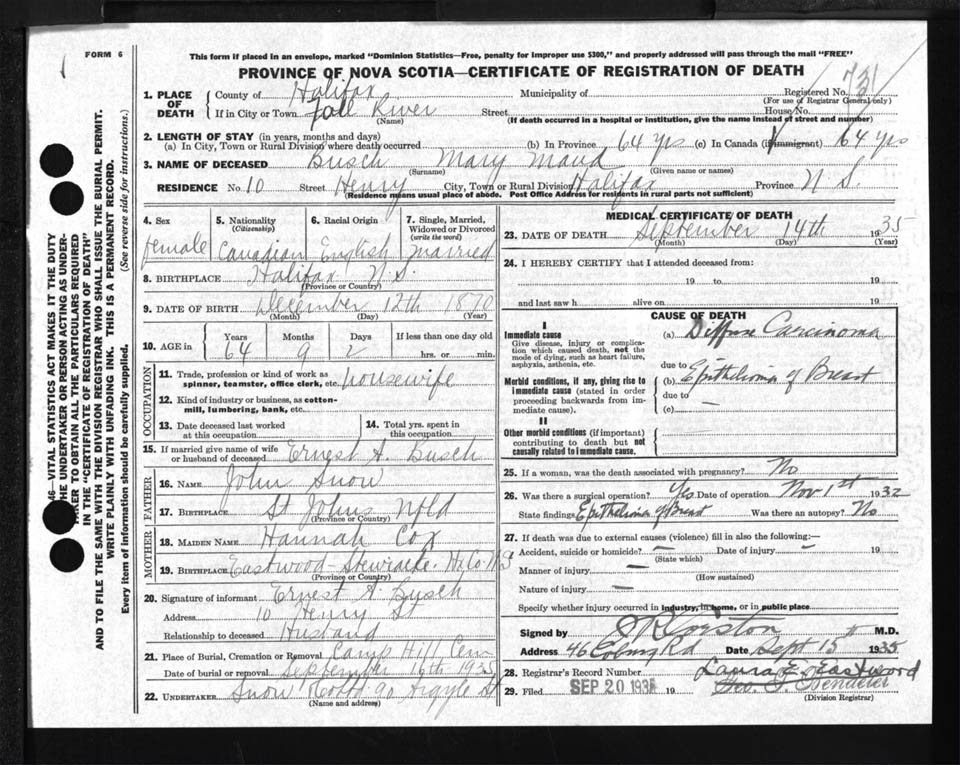 FORM 6
This form if placed in an envelope, marked "Dominion Statistics—Free, penalty for improper use $300," and properly addressed will pass through the mail "FREE"
PROVINCE OF NOVA SCOTIA—CERTIFICATE OF REGISTRATION OF DEATH
1. PLACE OF DEATH County of Halifax Municipality of Registered No. 731
(For use of Registrar General only)
If in City or Town Fall River Street House No.
(Name) (If death occurred in a hospital or institution, give the name instead of street and number)
2. LENGTH OF STAY (in years, months and days)
(a) In City, Town or Rural Division where death occurred (b) In Province 64 yrs (c) In Canada (if immigrant) 64 yrs
3. NAME OF DECEASED Busch Mary Maud
(Surname) (Given name or names)
RESIDENCE No. 10 Street Henry City, Town or Rural Division Halifax Province N.S.
(Residence means usual place of abode. Post Office Address for residents in rural parts not sufficient)
4. Sex 5. Nationality (Citizenship) 6. Racial Origin 7. Single, Married, Widowed or Divorced (write the word)
female Canadian English Married
8. BIRTHPLACE Halifax N.S.
(Province or Country)
9. DATE OF BIRTH December 12th 1870
(Month) (Day) (Year)
10. AGE in Years Months Days If less than one day old
64 9 2 hrs. or min.
OCCUPATION
11. Trade, profession or kind of work as spinner, teamster, office clerk, etc. housewife
12. Kind of industry or business, as cotton-mill, lumbering, bank, etc.
13. Date deceased last worked at this occupation
14. Total yrs. spent in this occupation
15. If married give name of wife or husband of deceased Ernest A. Busch
FATHER
16. NAME John Snow
17. BIRTHPLACE St Johns Nfld
(Province or Country)
MOTHER
18. MAIDEN NAME Hannah Cox
19. BIRTHPLACE Eastwood - Stewiacke. Hx Co. N S
(Province or Country)
20. Signature of informant Ernest A. Busch
Address 10 Henry St
Relationship to deceased Husband
21. Place of Burial, Cremation or Removal Camp Hill Cem
Date of burial or removal September 16th 1935
22. UNDERTAKER Snow 90 Argyle St
(Name and address)
MEDICAL CERTIFICATE OF DEATH
23. DATE OF DEATH September 14th 1935
(Month) (Day) (Year)
24. I HEREBY CERTIFY that I attended deceased from:
19 to 19
and last saw h alive on 19
CAUSE OF DEATH
I
Immediate cause
Give disease, injury or complication which caused death, not the mode of dying, such as heart failure, asphyxia, asthenia, etc.
(a) Diffuse Carcinoma
due to
Morbid conditions, if any, giving rise to immediate cause (stated in order proceeding backwards from immediate cause).
(b) Epithelioma of Breast
due to —
(c)
II
Other morbid conditions (if important) contributing to death but not causally related to immediate cause.
25. If a woman, was the death associated with pregnancy? No
26. Was there a surgical operation? Yes Date of operation Nov 1st 1932
State findings Epithelioma of Breast Was there an autopsy? No
27. If death was due to external causes (violence) fill in also the following:—
Accident, suicide or homicide? — Date of injury — 19
(State which)
Manner of injury —
(How sustained)
Nature of injury —
Specify whether injury occurred in industry, in home, or in public place
Signed by M.D.
Address 46 Coburg Rd Date Sept 15th 1935
28. Registrar's Record Number Laura E. Eastwood
29. Filed SEP 20 1935 19
(Division Registrar)
46—VITAL STATISTICS ACT MAKES IT THE DUTY
THE UNDERTAKER OR PERSON ACTING AS UNDER-
TAKER TO OBTAIN ALL THE PARTICULARS REQUIRED
IN THE "CERTIFICATE OF REGISTRATION OF DEATH"
AND TO FILE THE SAME WITH THE DIVISION REGISTRAR WHO SHALL ISSUE THE BURIAL PERMIT.
WRITE PLAINLY WITH UNFADING INK. THIS IS A PERMANENT RECORD.
Every item of information should be carefully supplied. (See reverse side for instructions.)